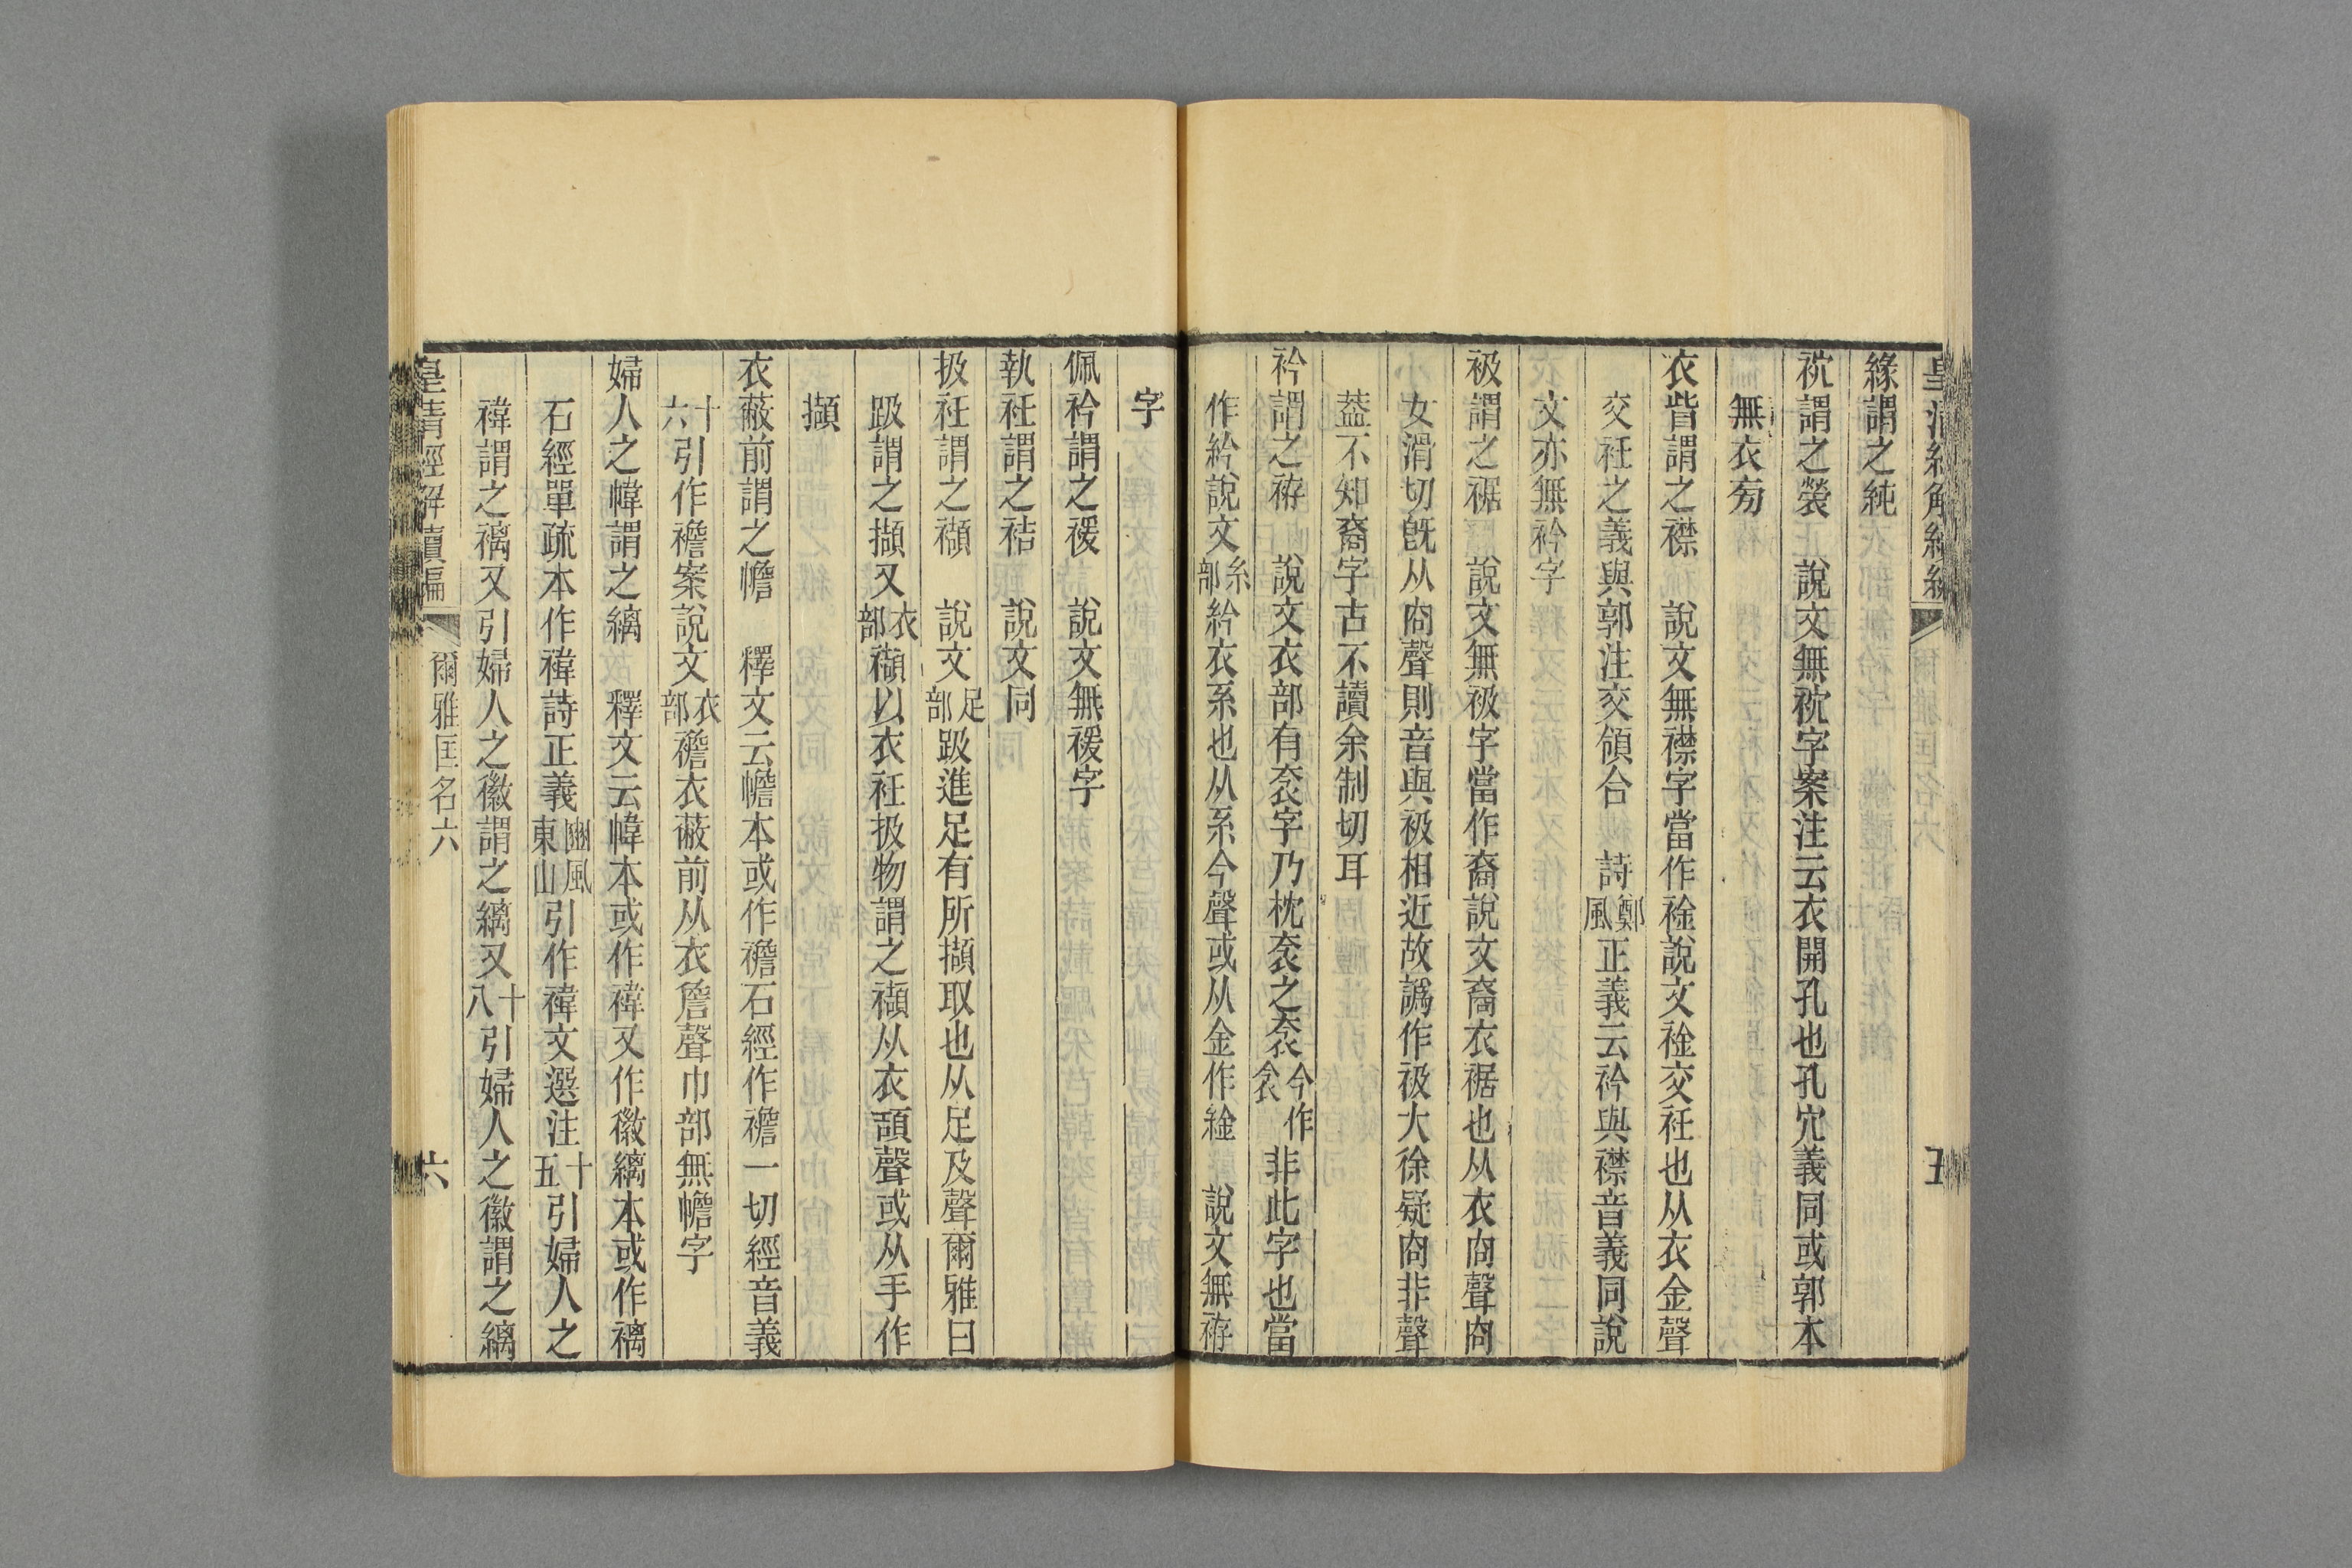 緣謂之純
裞謂之褮　說文無裞字案注云衣開孔也孔穴義同或郭本
無衣㫄
衣眥謂之襟　說文無襟字當作䘳說文䘳交衽也从衣金聲
交衽之義與郭注交領合　詩鄭風正義云衿與襟音義同說
文亦無衿字
衱謂之裾　說文無衱字當作裔說文裔衣裾也从衣㕯聲㕯
女滑切旣从㕯聲則音與衱相近故譌作衱大徐疑㕯非聲
葢不知裔字古不讀余制切耳
衿謂之袸　說文衣部有衾字乃枕衾之衾今作衾非此字也當
作紟說文糸部紟衣系也从系今聲或从金作䋮　說文無袸
字
佩衿謂之褑　說文無褑字
執衽謂之袺　說文同
扱衽謂之襭　說文足部趿進足有所擷取也从足及聲爾雅曰
趿謂之擷又衣部襭以衣衽扱物謂之襭从衣頡聲或从手作
擷
衣蔽前謂之襜　釋文云幨本或作襜石經作襜一切經音義
十六引作襜案說文衣部襜衣蔽前从衣詹聲巾部無幨字
婦人之幃謂之縭　釋文云幃本或作褘又作徽縭本或作褵
石經單疏本作褘詩正義豳風東山引作褘文選注十五引婦人之
褘謂之褵又引婦人之徽謂之縭又十八引婦人之徽謂之縭
皇清經解續編　爾雅匡名六　六